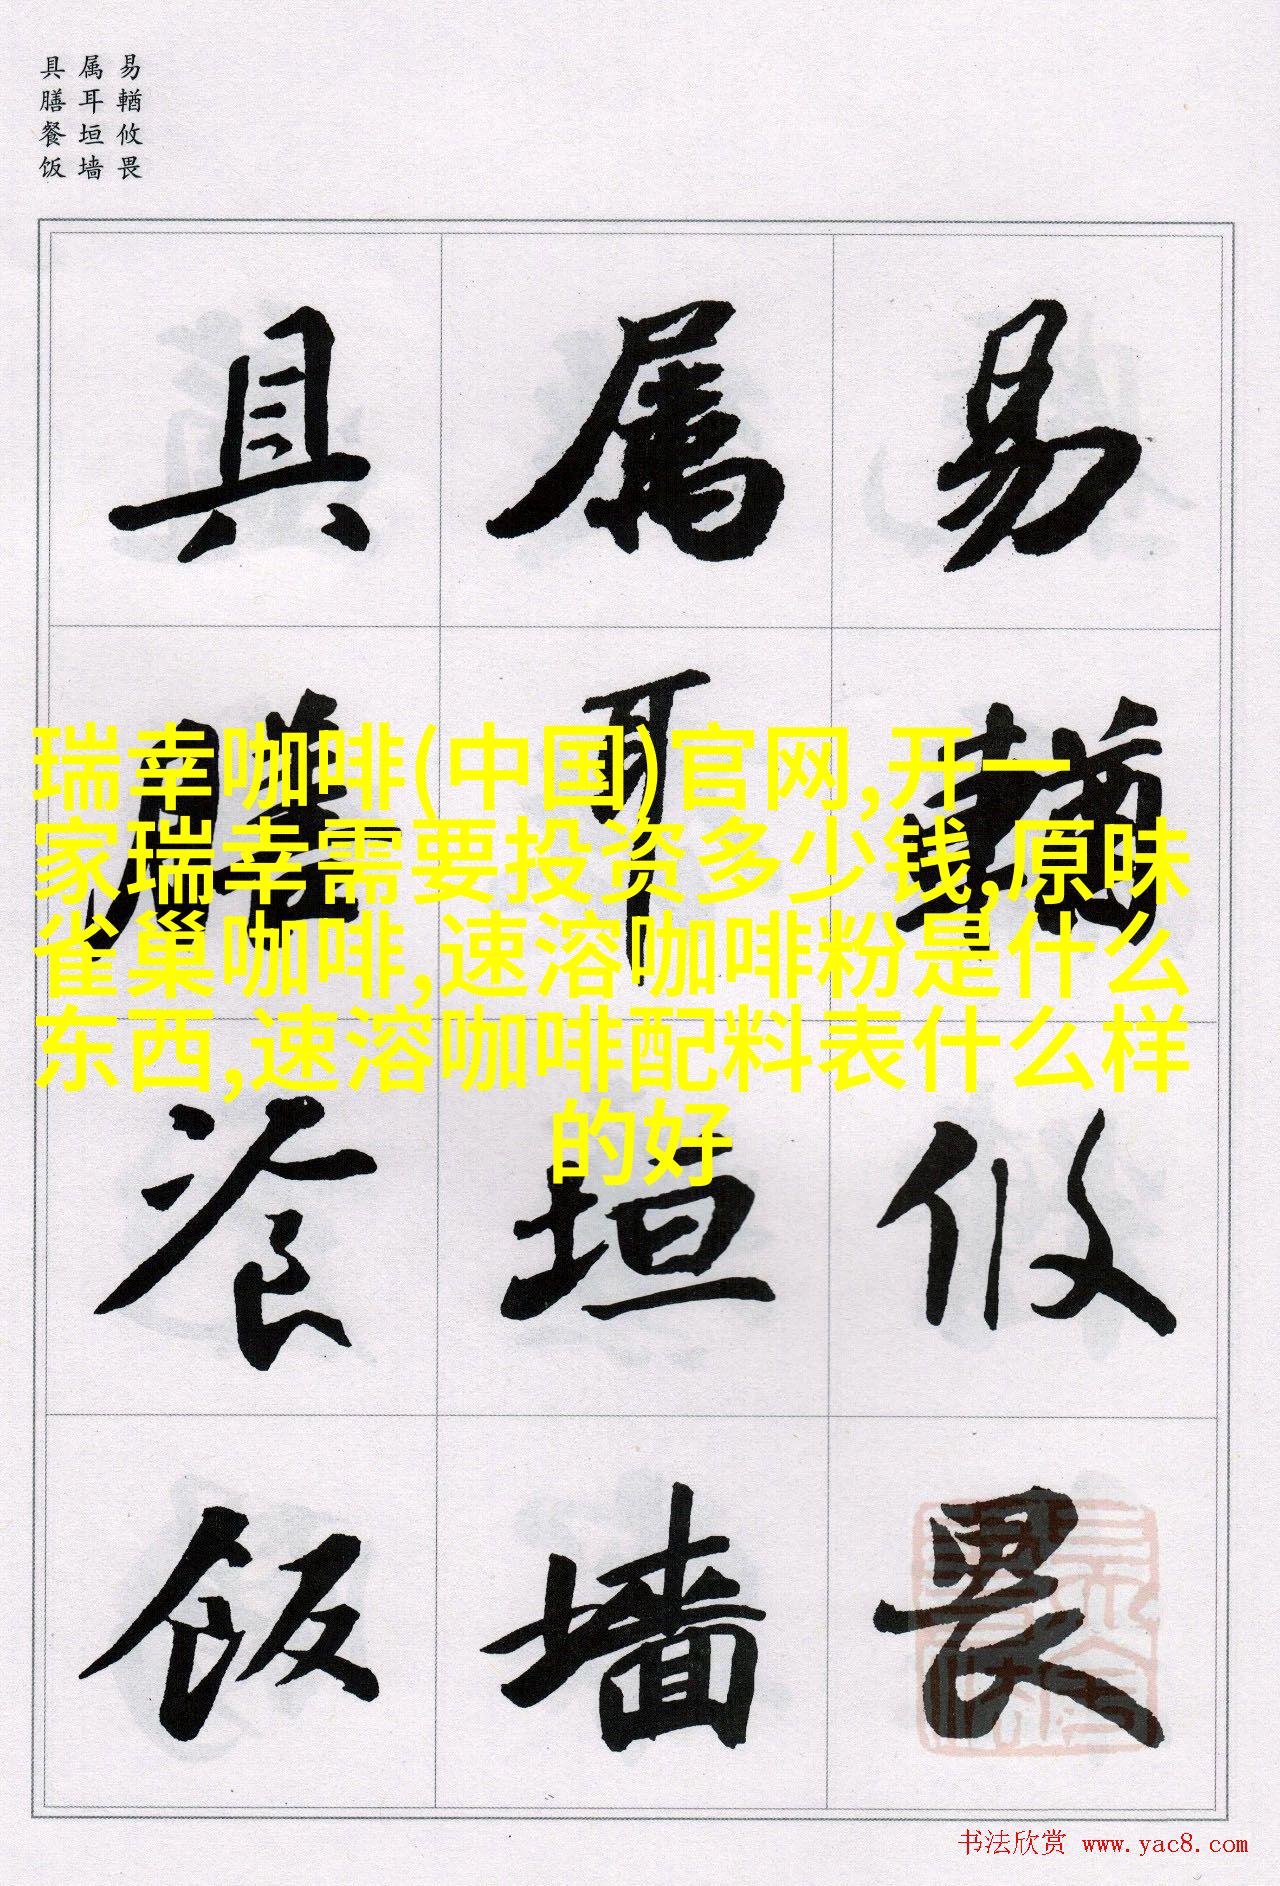 易輶攸畏
属耳垣墙
具膳餐饭
易輶攸畏
属耳垣墙
具膳飡饭
瑞幸咖啡(中国)官网,开一
家瑞幸需要投资多少钱,原味
雀巢咖啡,速溶咖啡粉是什么
东西,速溶咖啡配料表什么样
的好
书法欣赏 www.yac8.com